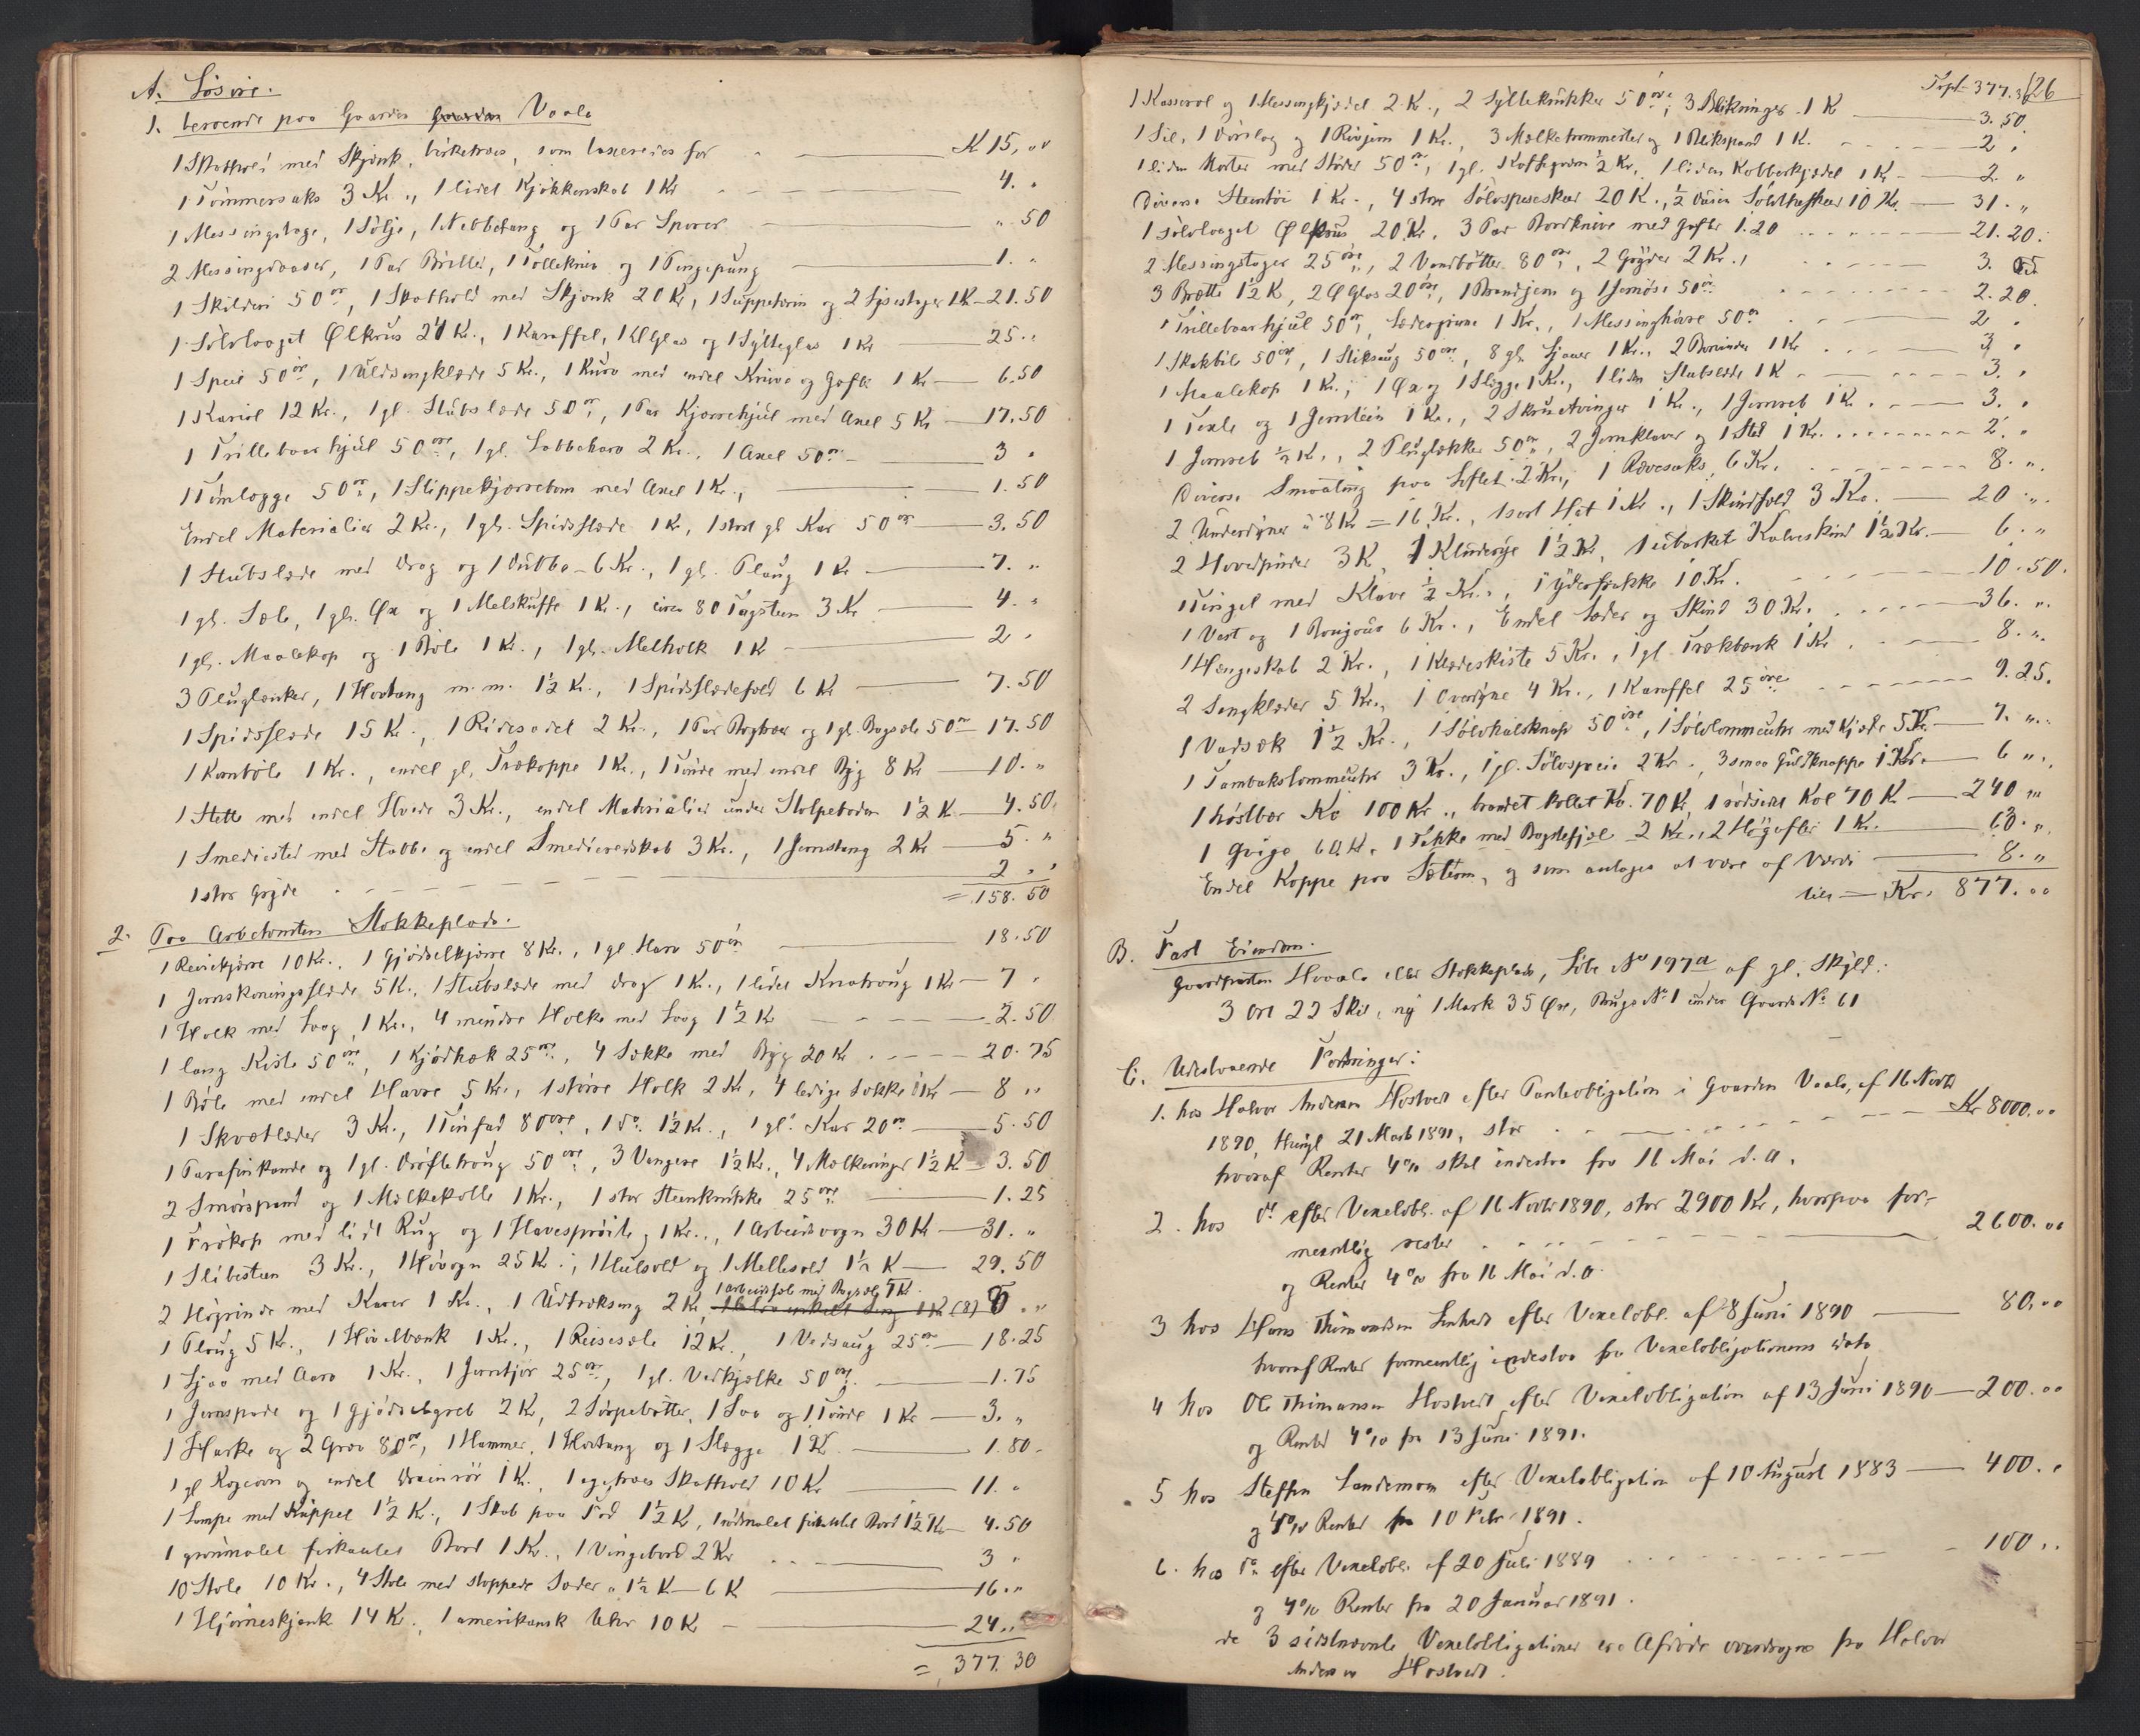 A. Løsøre.
1. beroende paa Gaarden Gaarden Vaala
1 Skathol med Skjænk, birketræes, som taxeredes for K 15,00
1 Tømmersaks 3 Kr., 1 lidet Kjøkkenskab 1 Kr 4. "
1 Messingstage, 1 Sølje, 1 Nebbetang og 1 Par Sporer " 50
2 Messingdaaser, 1 Par Briller, 1 Tollekniv og 1 Pengepung 1. "
1 Skilderi 50 øre, 1 Skathold med Skjænk 20 Kr, 1 Suppeterin og 2 Lysestager 1 K 21.50
1 Sølvlaaget Ølkrus 24 Kr., 1 Karaffel, 1 Ølglas og 1 Sylteglas 1 Kr 25. "
1 Speil 50 øre, 1 Uldsengklæde 5 Kr., 1 Kurv med endel Knive og Gafler 1 Kr 6.50
1 Kariol 12 Kr., 1 gl. Stubslæde 50 ør, 1 Par Kjærrehjul med Axel 5 Kr 17.50
1 Trillebaarhjul 50 øre, 1 gl. Labbeharv 2 Kr., 1 Axel 50 ør 3 "
1 Tømlægge 50 ør, 1 Slippekjærrebom med Axel 1 Kr., 1.50
Endel Materialier 2 Kr., 1 gl. Spidsslæde 1 Kr, 1 stort gl Kar 50 ør 3.50
1 Stubslæde med Drag og 1 Dubbe 6 Kr., 1 gl. Plaug 1 Kr 7. "
1 gl. Sæle, 1 gl. Øx og 1 Melskuffe 1 Kr., circa 80 Tagsteen 3 Kr 4. "
1 gl. Maalekop og 1 Bøle 1 Kr., 1 gl. Melholk 1 K 2 "
3 Pluglænker, 1 Hovtang m. m. 1½ Kr., 1 Spidsslædefæld 6 Kr 7.50
1 Spidsslæde 15 Kr., 1 Ridesadel 2 Kr., 1 Par Bogtræer og 1 gl. Bogsæle 50 ør 17.50
1 Kornbøle 1 Kr., endel gl. Trækoppe 1 Kr., 1 Tønde med endel Byg 8 Kr 10. "
1 Stette med endel Hvede 3 Kr., endel Materialier under Stolpeboden 1½ K 4.50
1 Smediested med Stabbe og endel Smedieredskab 3 Kr., 1 Jernstang 2 Kr 5. "
1 stor Gryde 2 "
= 158.50
2. Paa Arbetomten Stokkeplads.
1 Reisekjærre 10 Kr., 1 Gjødselkjærre 8 Kr., 1 gl Harv 50 ør 18.50
1 Jernskoningsslæde 5 K., 1 Stubslæde med Drag 1 Kr., 1 lidet Knatroug 1 Kr 7 "
1 Holk med Laag 1 Kr., 4 mindre Holke med Laag 1½ Kr 2.50
1 lang Kiste 50 øre, 1 Kjødhak 25 øre, 4 Sække med Byg 20 Kr 20.75
1 Bøle med endel Havre 5 Kr., 1 større Holk 2 Kr, 4 ledige Sække 1 Kr 8 "
1 Skvætlæder 3 Kr., 1 Tinfad 80 øre, 1 do. 1½ Kr., 1 gl. Kar 20 ør 5.50
1 Parafinkande og 1 gl. Drøftetroug 50 øre, 3 Vangere 1½ Kr., 4 Mælkeringer 1½ K 3.50
2 Smørspand og 1 Mælkekolle 1 Kr., 1 stor Steenkrukke 25 øre 1.25
1 Trækop med lidt Rug og 1 Havesprøite 1 Kr., 1 Arbeidsvogn 30 Kr 31. "
1 Slibesteen 3 Kr., 1 Høvogn 25 Kr., 1 Hulsold og 1 Mellesold 1½ K 29.50
1 arbeidssæle med Bogsæle 5 Kr.
2 Høgrinde med Karer 1 Kr., 1 Udtræksseng 2 Kr, (8) 8 "
1 Ploug 5 Kr., 1 Høvelbænk 1 Kr., 1 Reisesæle 12 Kr., 1 Vedsaug 25 ør 18.25
1 Ljaa med Aarv 1 Kr., 1 Jerntjor 25 ør, 1 gl. Vedkjælke 50 ør. 1.75
1 Jernspade og 1 Gjødselgreb 2 Kr, 2 Sørpebøtter, 1 Saa og 1 Tønde 1 Kr 3. "
1 Harke og 2 Grev 80 ør, 1 Hammer, 1 Hovtang og 1 Slægge 1 K 1.80
1 gl Kogeovn og endel Drainrør 1 K., 1 egetræes Skathold 10 Kr 11. "
1 Lampe med Kuppel 1½ Kr., 1 Skab paa Fod 1½ K, 1 rødmalet firkantet Bord 1½ Kr 4.50
1 grønmalet firkantet Bord 1 Kr., 1 Vingebord 2 Kr 3 "
10 Stole 10 Kr., 4 Stole med stoppede Sæder a 1½ K 6 K 16. "
1 Hjørneskjænk 14 Kr., 1 amerikansk Uhr 10 K 24. "
= 377.30
Trpt 377.30 126
1 Kasserol og 1 Messingkjedel 2 K., 2 Syltekrukker 50 øre, 3 Blikringer 1 K 3.50
1 Sil, 1 Dørslag og 1 Rivjern 1 Kr., 3 Mælketrommeter og 1 Blikspand 1 K. 2 "
1 liden Morter med Støder 50 ør, 1 gl. Kaffegryde ½ Kr, 1 liden Kobberkjedel 1 K 2. "
Diverse Steentøi 1 Kr., 4 store Sølvspiseskeer 20 K., ½ Dusin Sølvtheskeer 10 Kr. 31. "
1 sølvlaaget Ølkrus 20 Kr. 3 Par Bordknive med Gafler 1.20 21.20.
2 Messingstager 25 øre, 2 Vandbøtter 80 ør, 2 Gryder 2 Kr., 3. 05
3 Brætte 1½ K, 2 Ølglas 20 øre, 1 Brandjern og 1 Jernøse 50 ør 2.20.
1 Trillebaarhjul 50 ør, 1 Kr., 1 Messinghane 50 ør 2 "
1 Skakbile 50 øre, 1 Stiksaug 50 øre, 8 gl. Ljaaer 1 Kr., 2 1 Kr 3 "
1 Maalekop 1 Kr., 1 Øx og 1 Slegge 1 Kr., 1 liden Stubslæde 1 K 3. "
1 Texle og 1 Jernteen 1 Kr., 2 Skruetvinger 1 Kr., 1 Jernreb 1 K. 3. "
1 Jernreb ½ K., 2 Pluglækker 50 ør, 2 Jernklaver og 1 Sted 1 Kr. 2. "
Diverse Smaating paa Loftet 2 Kr., 1 Rævesaks 6 Kr. 8. "
2 Underdyner a 8 Kr = 16 Kr., 1 sort Hat 1 Kr., 1 Skindfæld 3 Kr. 20 "
2 Hovedpuder 3 K, 1 Kluderye 1½ K, 1 ubarket Kalveskind 1½ Kr. 6. "
1 Tingel med Klave ½ Kr., 1 Yderfrakke 10 Kr. 10.50.
1 Vest og 1 Bonjour 6 Kr., Endel Læder og Skind 30 Kr. 36. "
1 Hængeskab 2 Kr., 1 Klædeskiste 5 Kr., 1 gl Trækbænk 1 Kr 8. "
2 Sengklæder 5 Kr., 1 Overdyne 4 Kr., 1 Karaffel 25 øre 9.25.
1 Vadsæk 1½ Kr., 1 Sølvhalsknap 50 øre, 1 Sølvlommeuhr med Kjæde 5 K 7. "
1 Tombakslommeuhr 3 Kr., 1 gl. Sølvspeie 2 Kr., 3 smaa Guldknappe 1 Kr. 6 "
1 høstbær Ko 100 Kr., brandet kollet Ko 70 K, 1 rødsidet Kol 70 K 240 "
1 Qvige 60 K. 1 Sække med Bogstefjæl 2 Kr., 2 Høgafler 1 Kr. 63. "
Endel Koppe paa Sæteren, og som antages at være af Værdi 8. "
tils Kr. 877.00
B. Fast Eiendom.
Gaardparten Hvaala eller Stokkeplads, Løbe No 197a af gl. Skyld:
3 Ort 22 Skil, ny 1 Mark 35 Øre, Brugs No 1 under Gaards No 61
C. Udestaaende Fordringer:
1. hos Halvor Andersen Hostvedt efter Panteobligation i Gaarden Vaala, af 16 Novbr
1890, thingl 21 Marts 1891, stor Kr 8000.00
hvoraf Renter 4% skal indestaa fra 16 Mai d. A.
2. hos do efter Vexelobl. af 16 Novbr 1890, stor 2900 Kr, hvorpaa for-
meentlig rester 2600.00
og Renter 4% fra 16 Mai d. A.
3 hos Hans Thimandsen efter Vexelobl. af 8 Juni 1890 80,00
hvoraf Renter formeentlig indestaa fra Vexelobligationens Dato
4 hos Ole Thimansen Hostvedt efter Vexelobligation af 13 Juni 1890 200.00
og Renter 4% fra 13 Juni 1891.
5 hos Steffen Landsman efter Vexelobligation af 10 August 1883 400. "
og 4% Renter fra 10 Febr 1891.
6. hos do efter Vexelobl. af 20 Juli 1889 100 "
og 4% Renter fra 20 Januar 1891.
de 3 sidstnævnte Vexelobligationer ere Afdøde overdragne fra Halvor
Andersen Hostvedt.